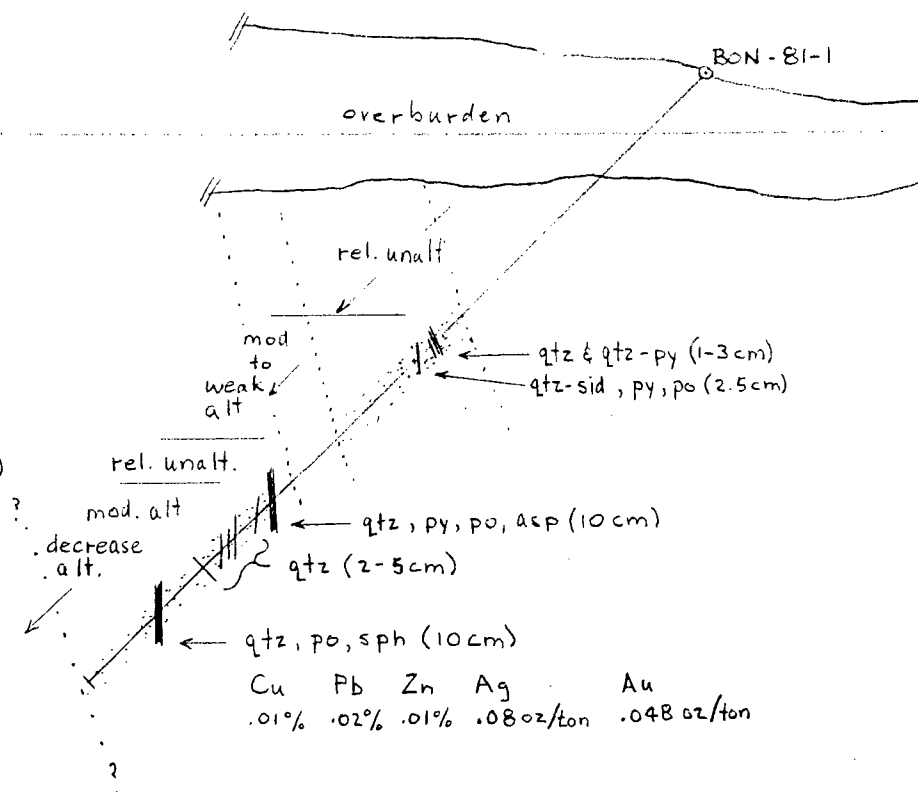 BON-81-1
overburden
rel. unalt
mod
to
weak
alt
qtz & qtz-py (1-3cm)
qtz-sid, py, po (2.5cm)
rel. unalt.
mod. alt
?
decrease
alt.
qtz, py, po, asp (10cm)
qtz (2-5cm)
qtz, po, sph (10cm)
Cu Pb Zn Ag Au
.01% .02% .01% .08 oz/ton .048 oz/ton
?